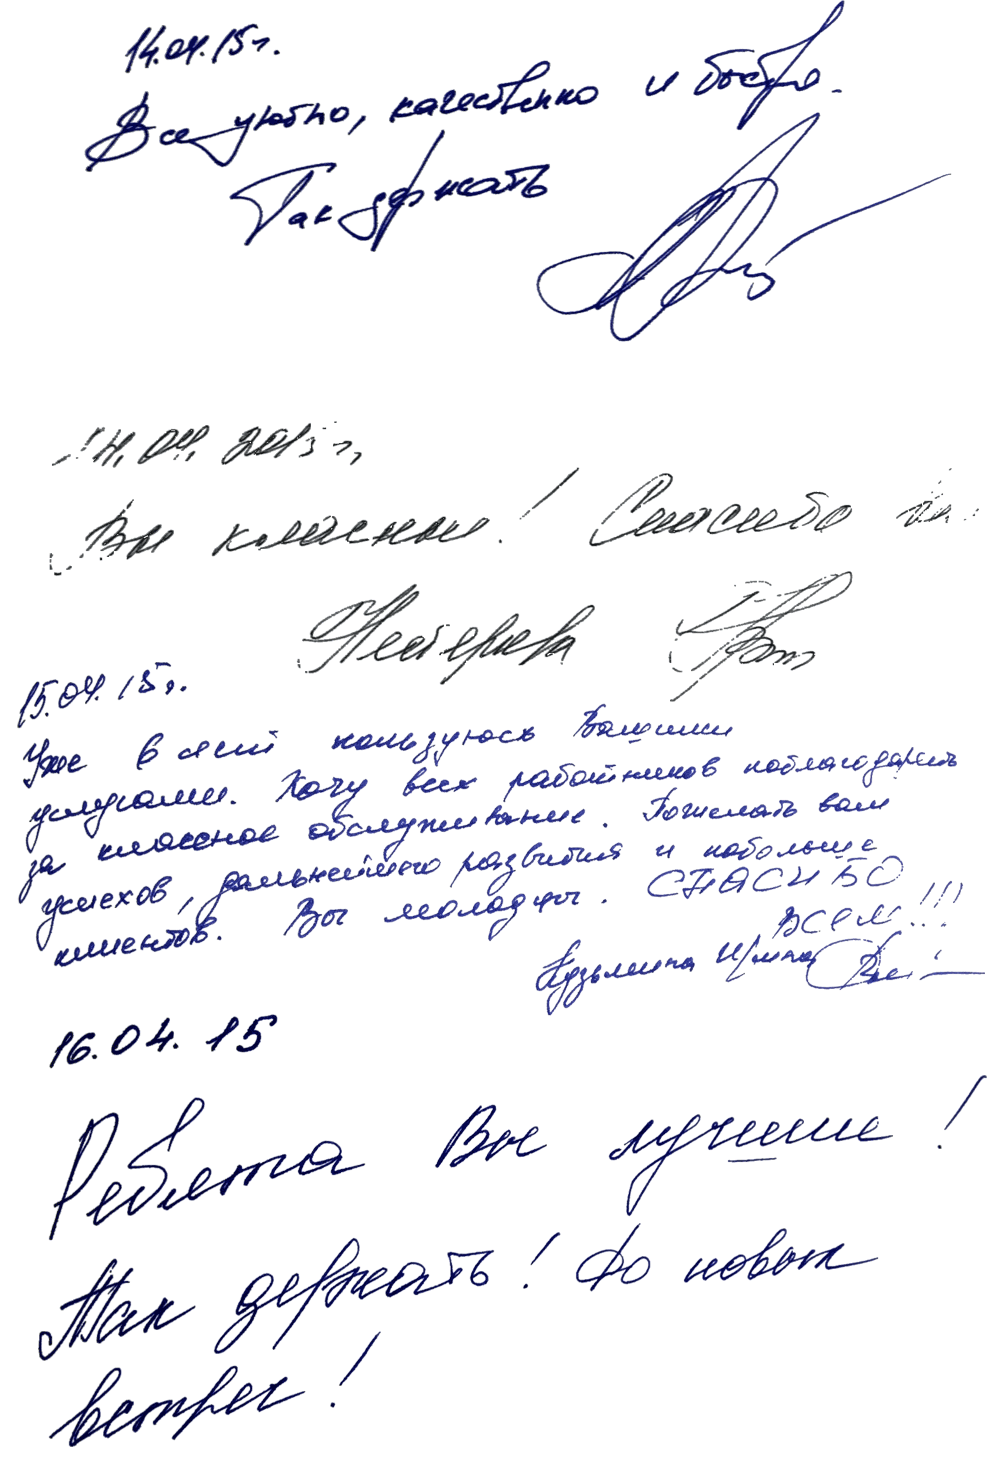 14.04.15г.
Все уютно, качественно и быстро.
Так держать
14.04.2015г,
Вы классные! Спасибо
Нестерова
15.04.15г.
Уже в сети пользуюсь Вашими
услугами. Хочу всех работников поблагодарить
за классное обслуживание. Пожелать вам
успехов, дальнейшего развития и побольше
клиентов. Вы молодцы. СПАСИБО
ВСЕМ!!!
Кузьмина Ирина
16.04.15
Ребята Вы лучшие!
Так держать! До новых
встреч!